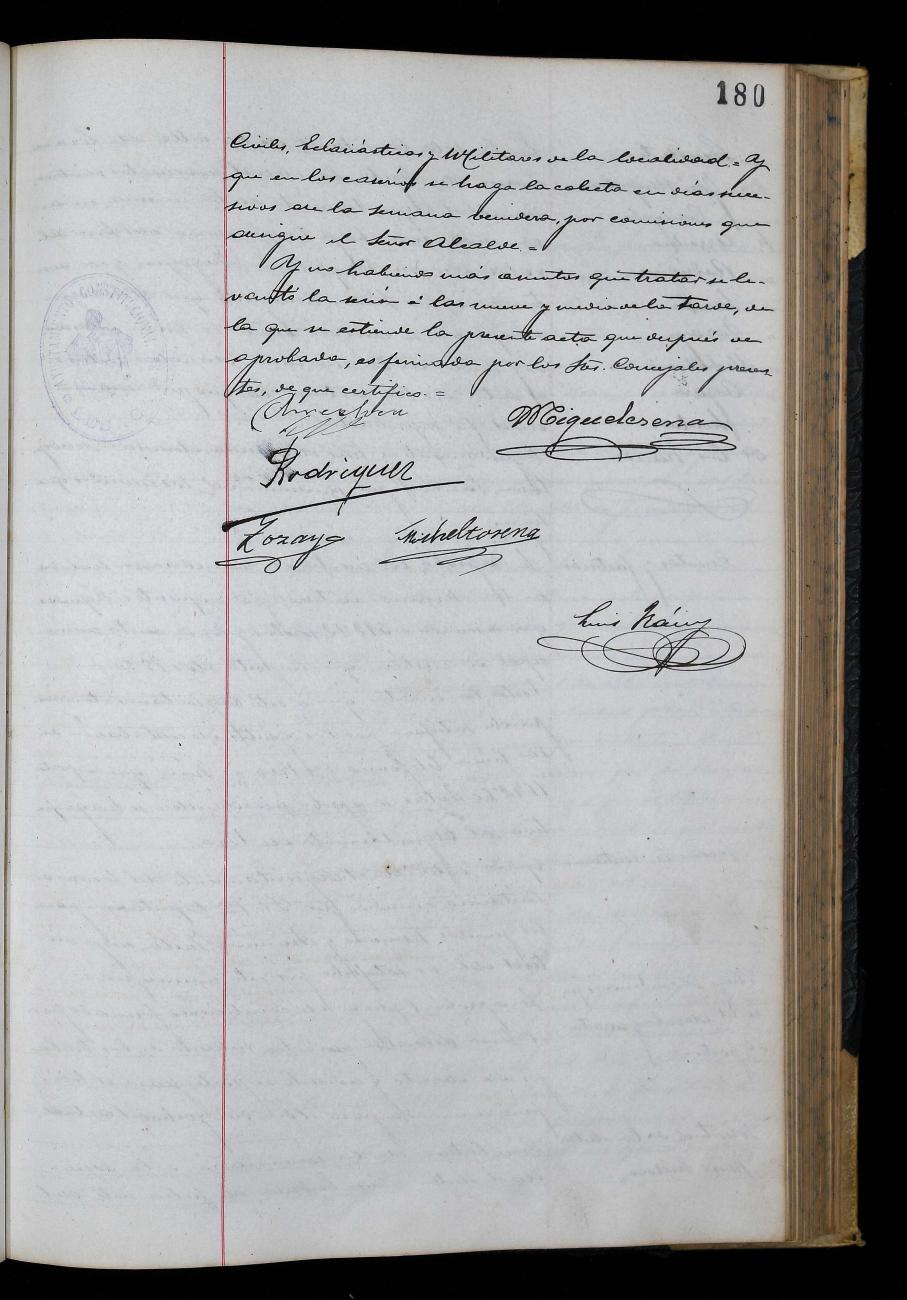 180
Civiles, Eclesiásticos y Militares de la localidad. = Y
que en los caseríos se haga la colecta en días suce-
sivos de la semana venidera, por comisiones que
designe el Señor Alcalde. =
Y no habiendo más asuntos que tratar se le-
vantó la sesión á las nueve y media de la tarde, de
la que se extiende la presente acta que después de
aprobada, es firmada por los Sres. Concejales presen-
tes, de que certifico. =
Rodriguez
Zozaya Micheltorena
Luis